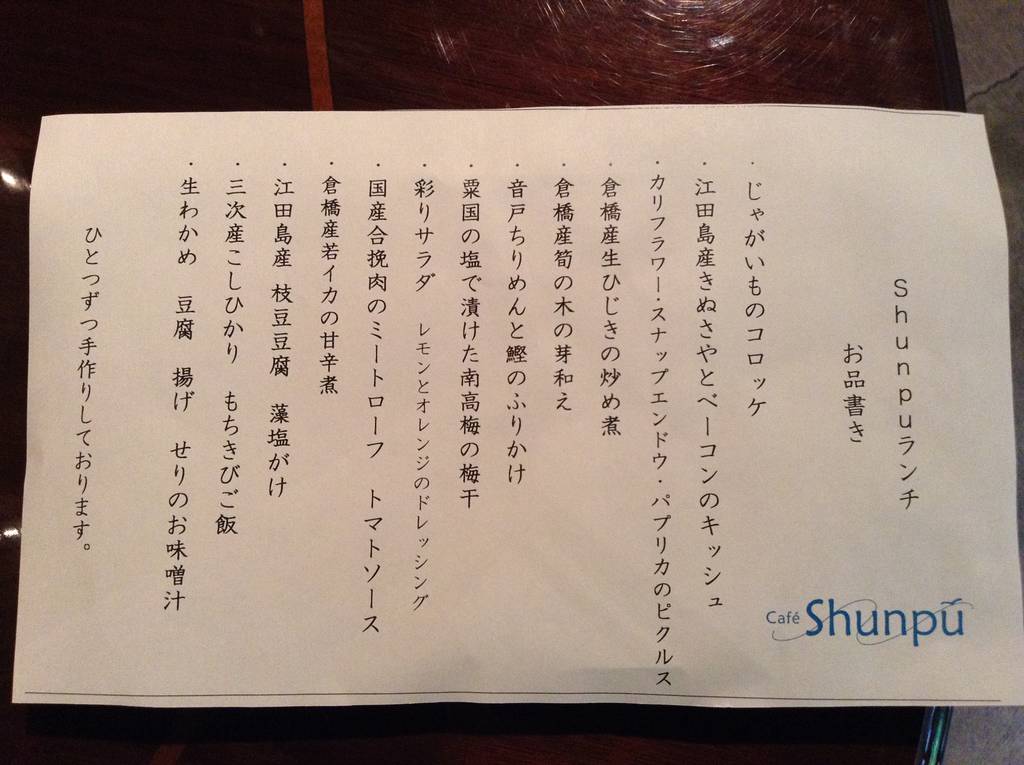 Shunpuランチ
お品書き
・じゃがいものコロッケ
・江田島産きぬさやとベーコンのキッシュ
・カリフラワー・スナップエンドウ・パプリカのピクルス
・倉橋産生ひじきの炒め煮
・倉橋産筍の木の芽和え
・音戸ちりめんと鰹のふりかけ
・粟国の塩で漬けた南高梅の梅干
・彩りサラダ　レモンとオレンジのドレッシング
・国産合挽肉のミートローフ　トマトソース
・倉橋産若イカの甘辛煮
・江田島産 枝豆豆腐　藻塩がけ
・三次産こしひかり　もちきびご飯
・生わかめ　豆腐　揚げ　せりのお味噌汁
ひとつずつ手作りしております。
Café Shunpū